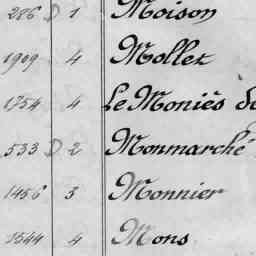 286 D 1 Moison
1909 4 Mollet
1754 4 Le Moniès de
533 D 2 Monmarché
1456 3 Monnier
1544 4 Mons